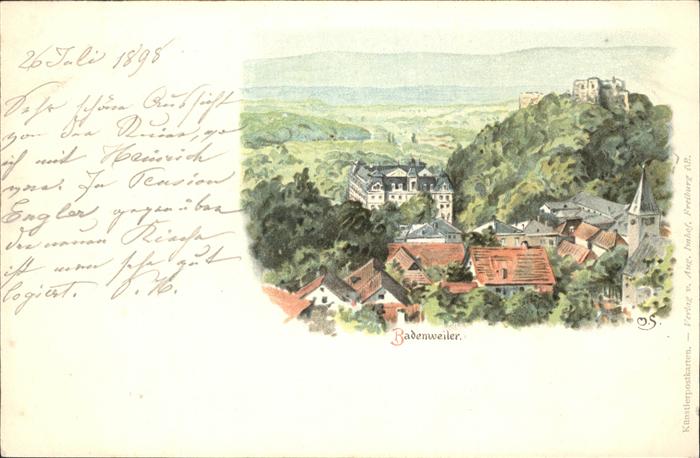 26 Juli 1898
Sehr schöne Aussicht
von der Ruine, wo
ich mit Heinrich
war. In Pension
Engler gegenüber
der neuen Kirche
ist man sehr gut
logiert. S. H.
Badenweiler.
OS.
Künstlerpostkarten. — Verlag v. Aug. Imhof, Freiburg i/B.